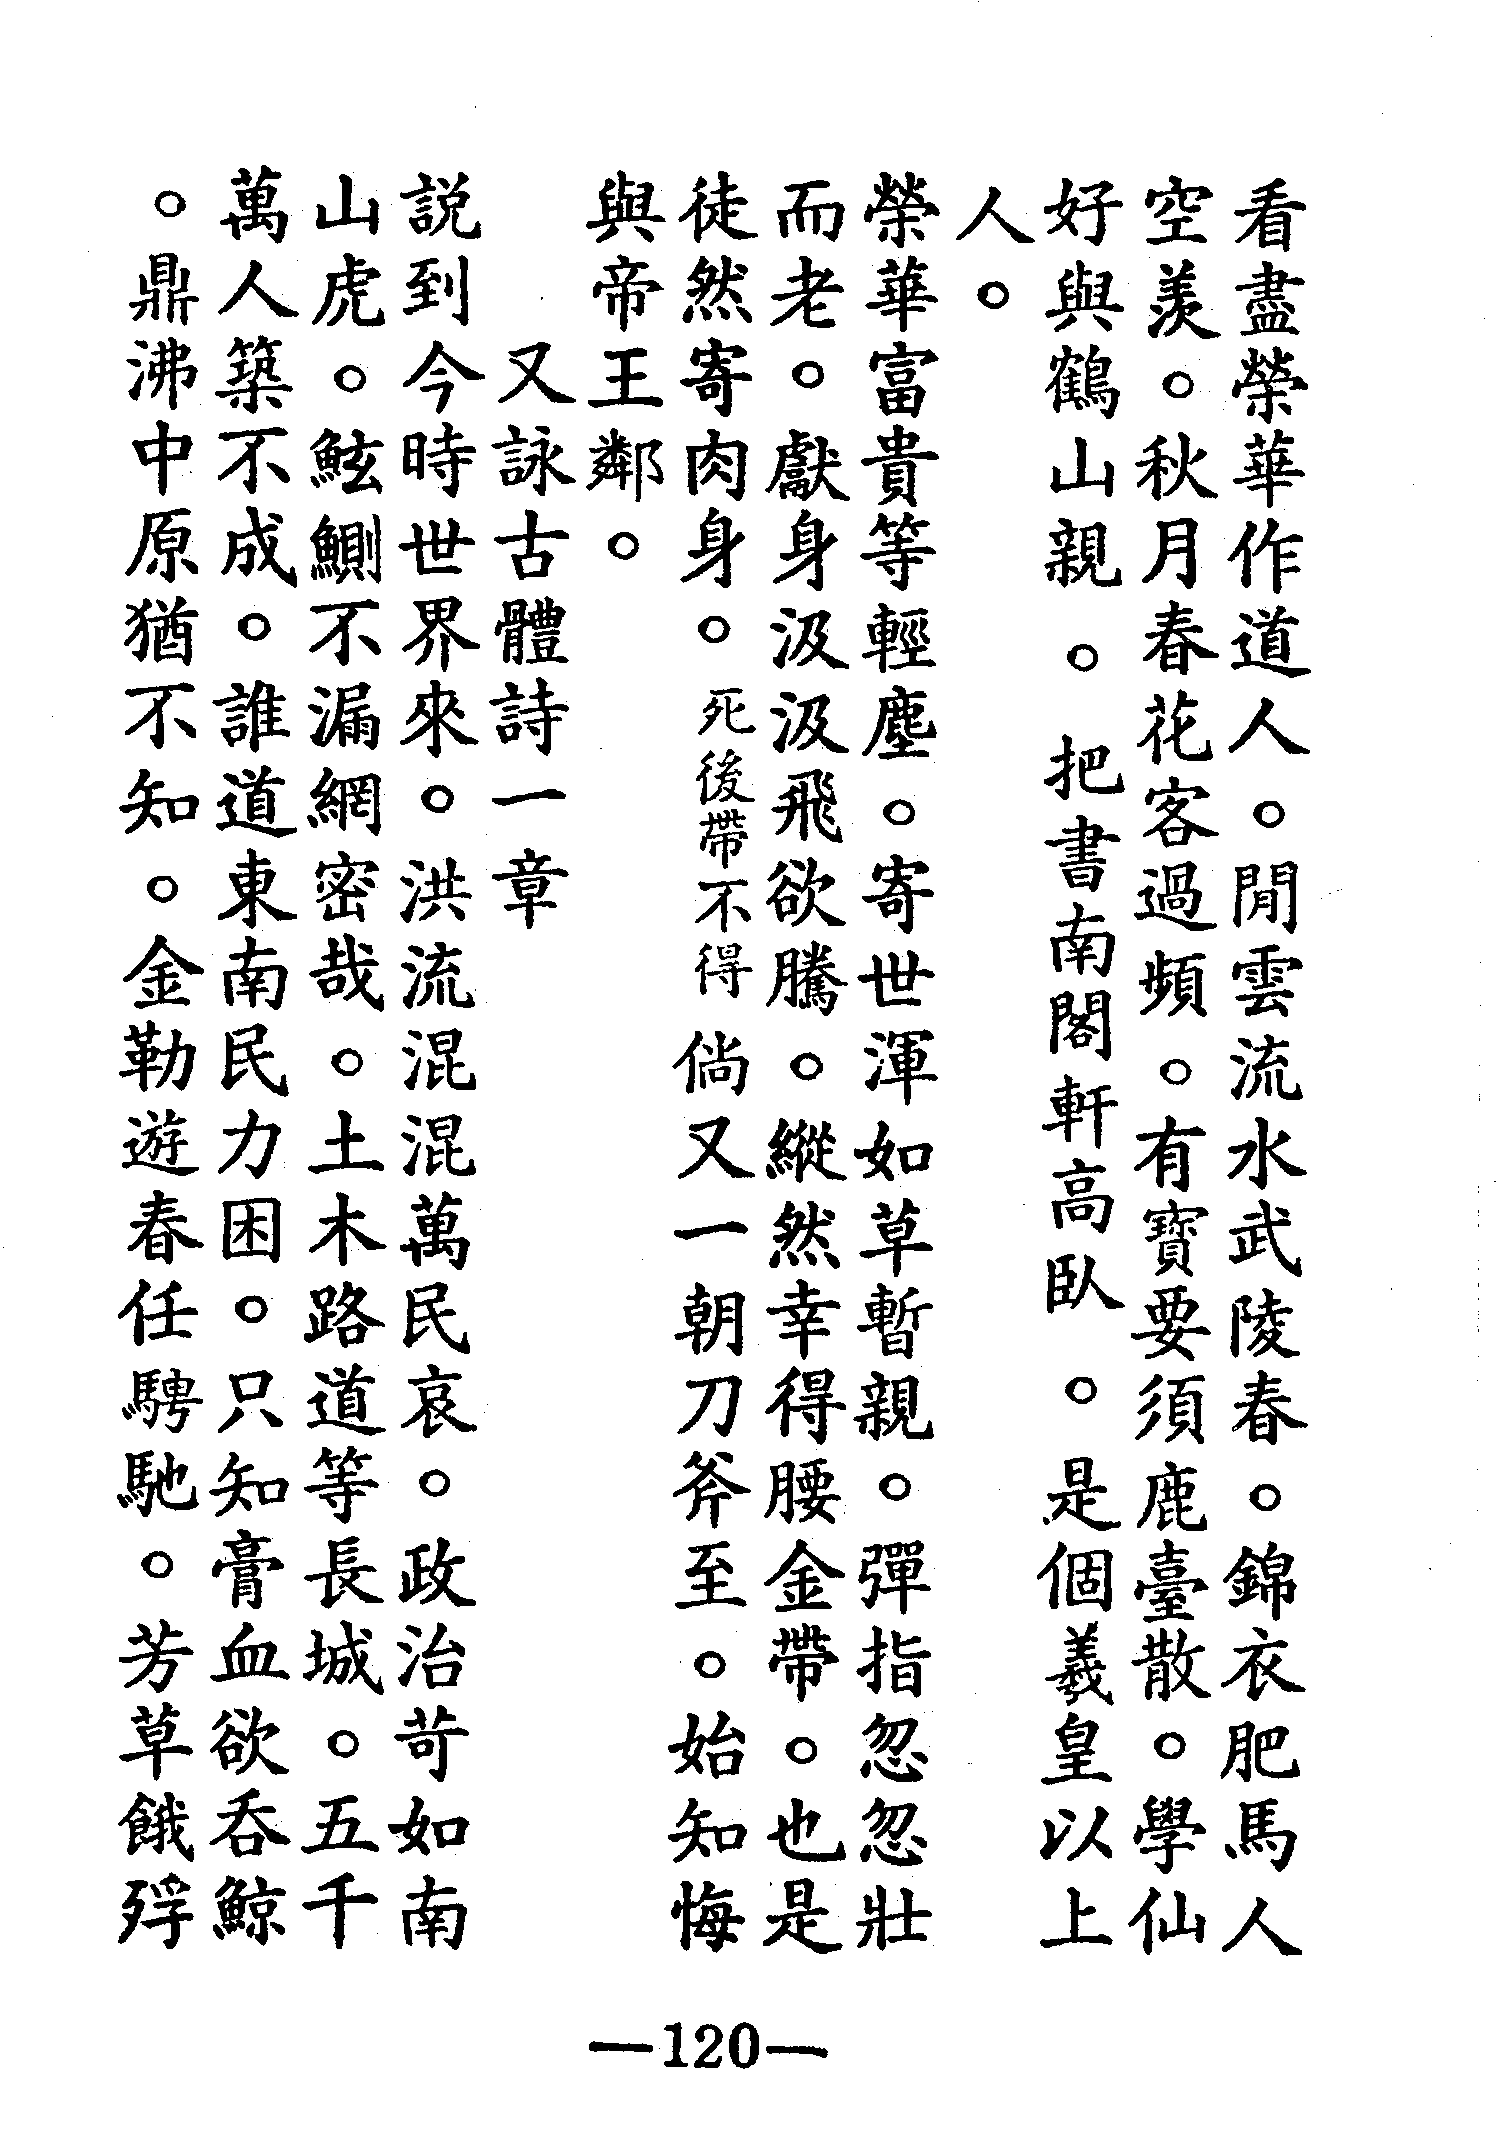 看盡榮華作道人。閒雲流水武陵春。錦衣肥馬人
空羨。秋月春花客過頻。有寶要須鹿臺散。學仙
好與鶴山親。把書南閣軒高臥。是個羲皇以上
人。
榮華富貴等輕塵。寄世渾如草暫親。彈指忽忽壯
而老。獻身汲汲飛欲騰。縱然幸得腰金帶。也是
徒然寄肉身。死後帶不得倘又一朝刀斧至。始知悔
與帝王鄰。
又詠古體詩一章
説到今時世界來。洪流混混萬民哀。政治苛如南
山虎。鮌鰂不漏網密哉。土木路道等長城。五千
萬人築不成。誰道東南民力困。只知膏血欲吞鯨
。鼎沸中原猶不知。金勒遊春任騁馳。芳草餓殍
—120—